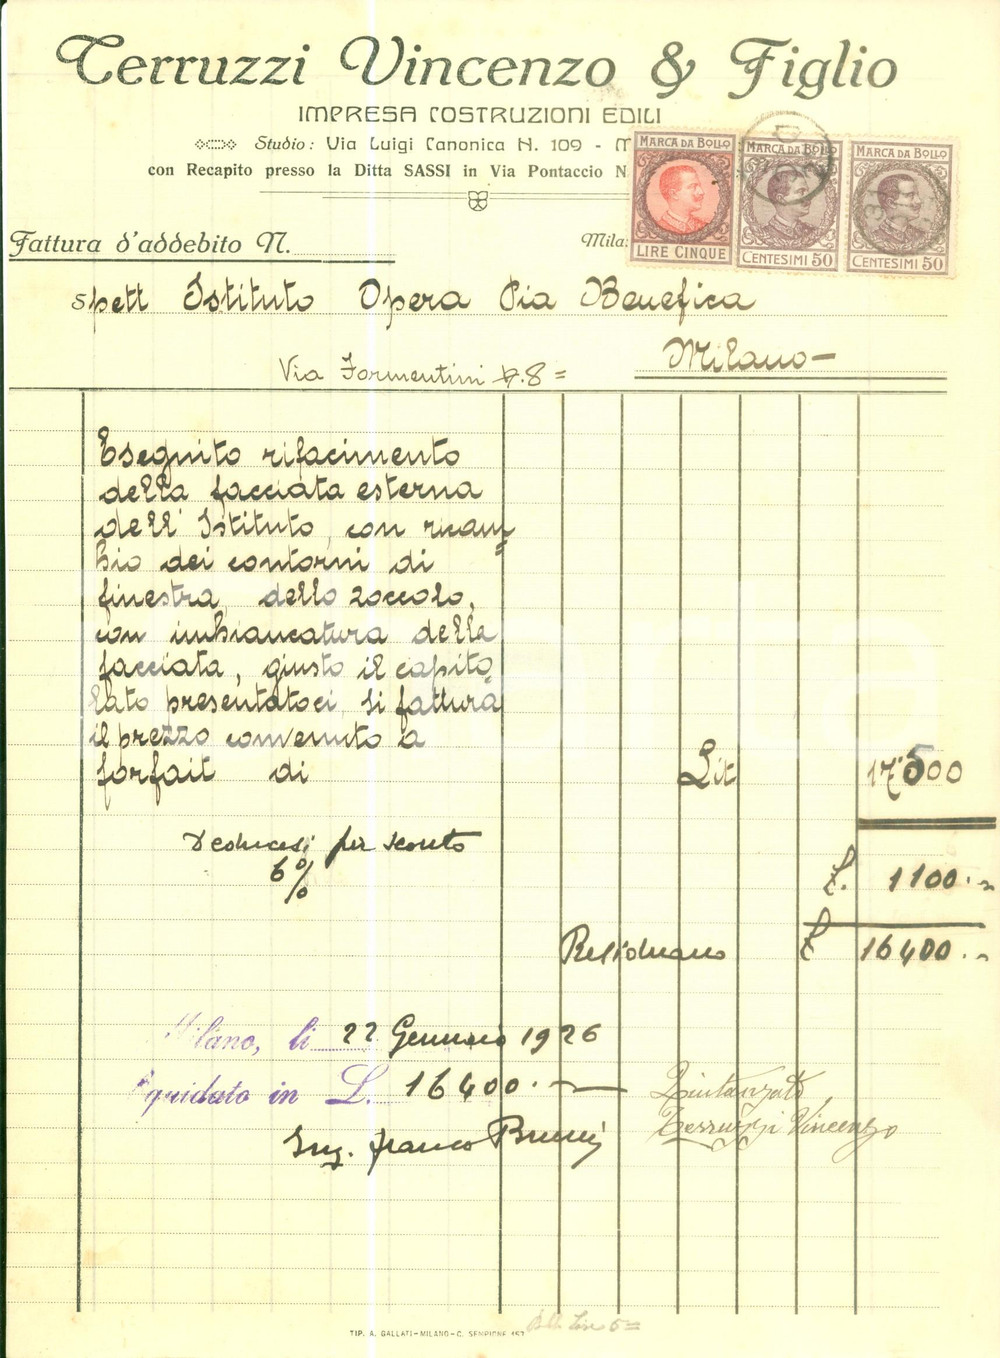 Terruzzi Vincenzo & Figlio
IMPRESA COSTRUZIONI EDILI
Studio: Via Luigi Canonica N. 109 - M
con Recapito presso la Ditta SASSI in Via Pontaccio N.
MARCA DA BOLLO
LIRE CINQUE
MARCA DA BOLLO
CENTESIMI 50
MARCA DA BOLLO
CENTESIMI 50
Fattura d'addebito N.
Mila
Spett Istituto Opera Pia Benefica
Milano
Via Formentini N. 8 =
Eseguito rifacimento
della facciata esterna
dell'Istituto, con ricam=
bio dei contorni di
finestra, dello zoccolo,
con imbiancatura della
facciata, giusto il capito=
lato presentatoci, si fattura
il prezzo convenuto a
forfait di Lit 17'500
Deducesi per sconto
6% £. 1100.-
Residuano £ 16400.-
Milano, li 22 Gennaio 1926
liquidato in L. 16400.-
Ing. Franco Brunij
Quitanzato
Terruzzi Vincenzo
TIP. A. GALLATI-MILANO-C. SEMPIONE 157
Lire 5=